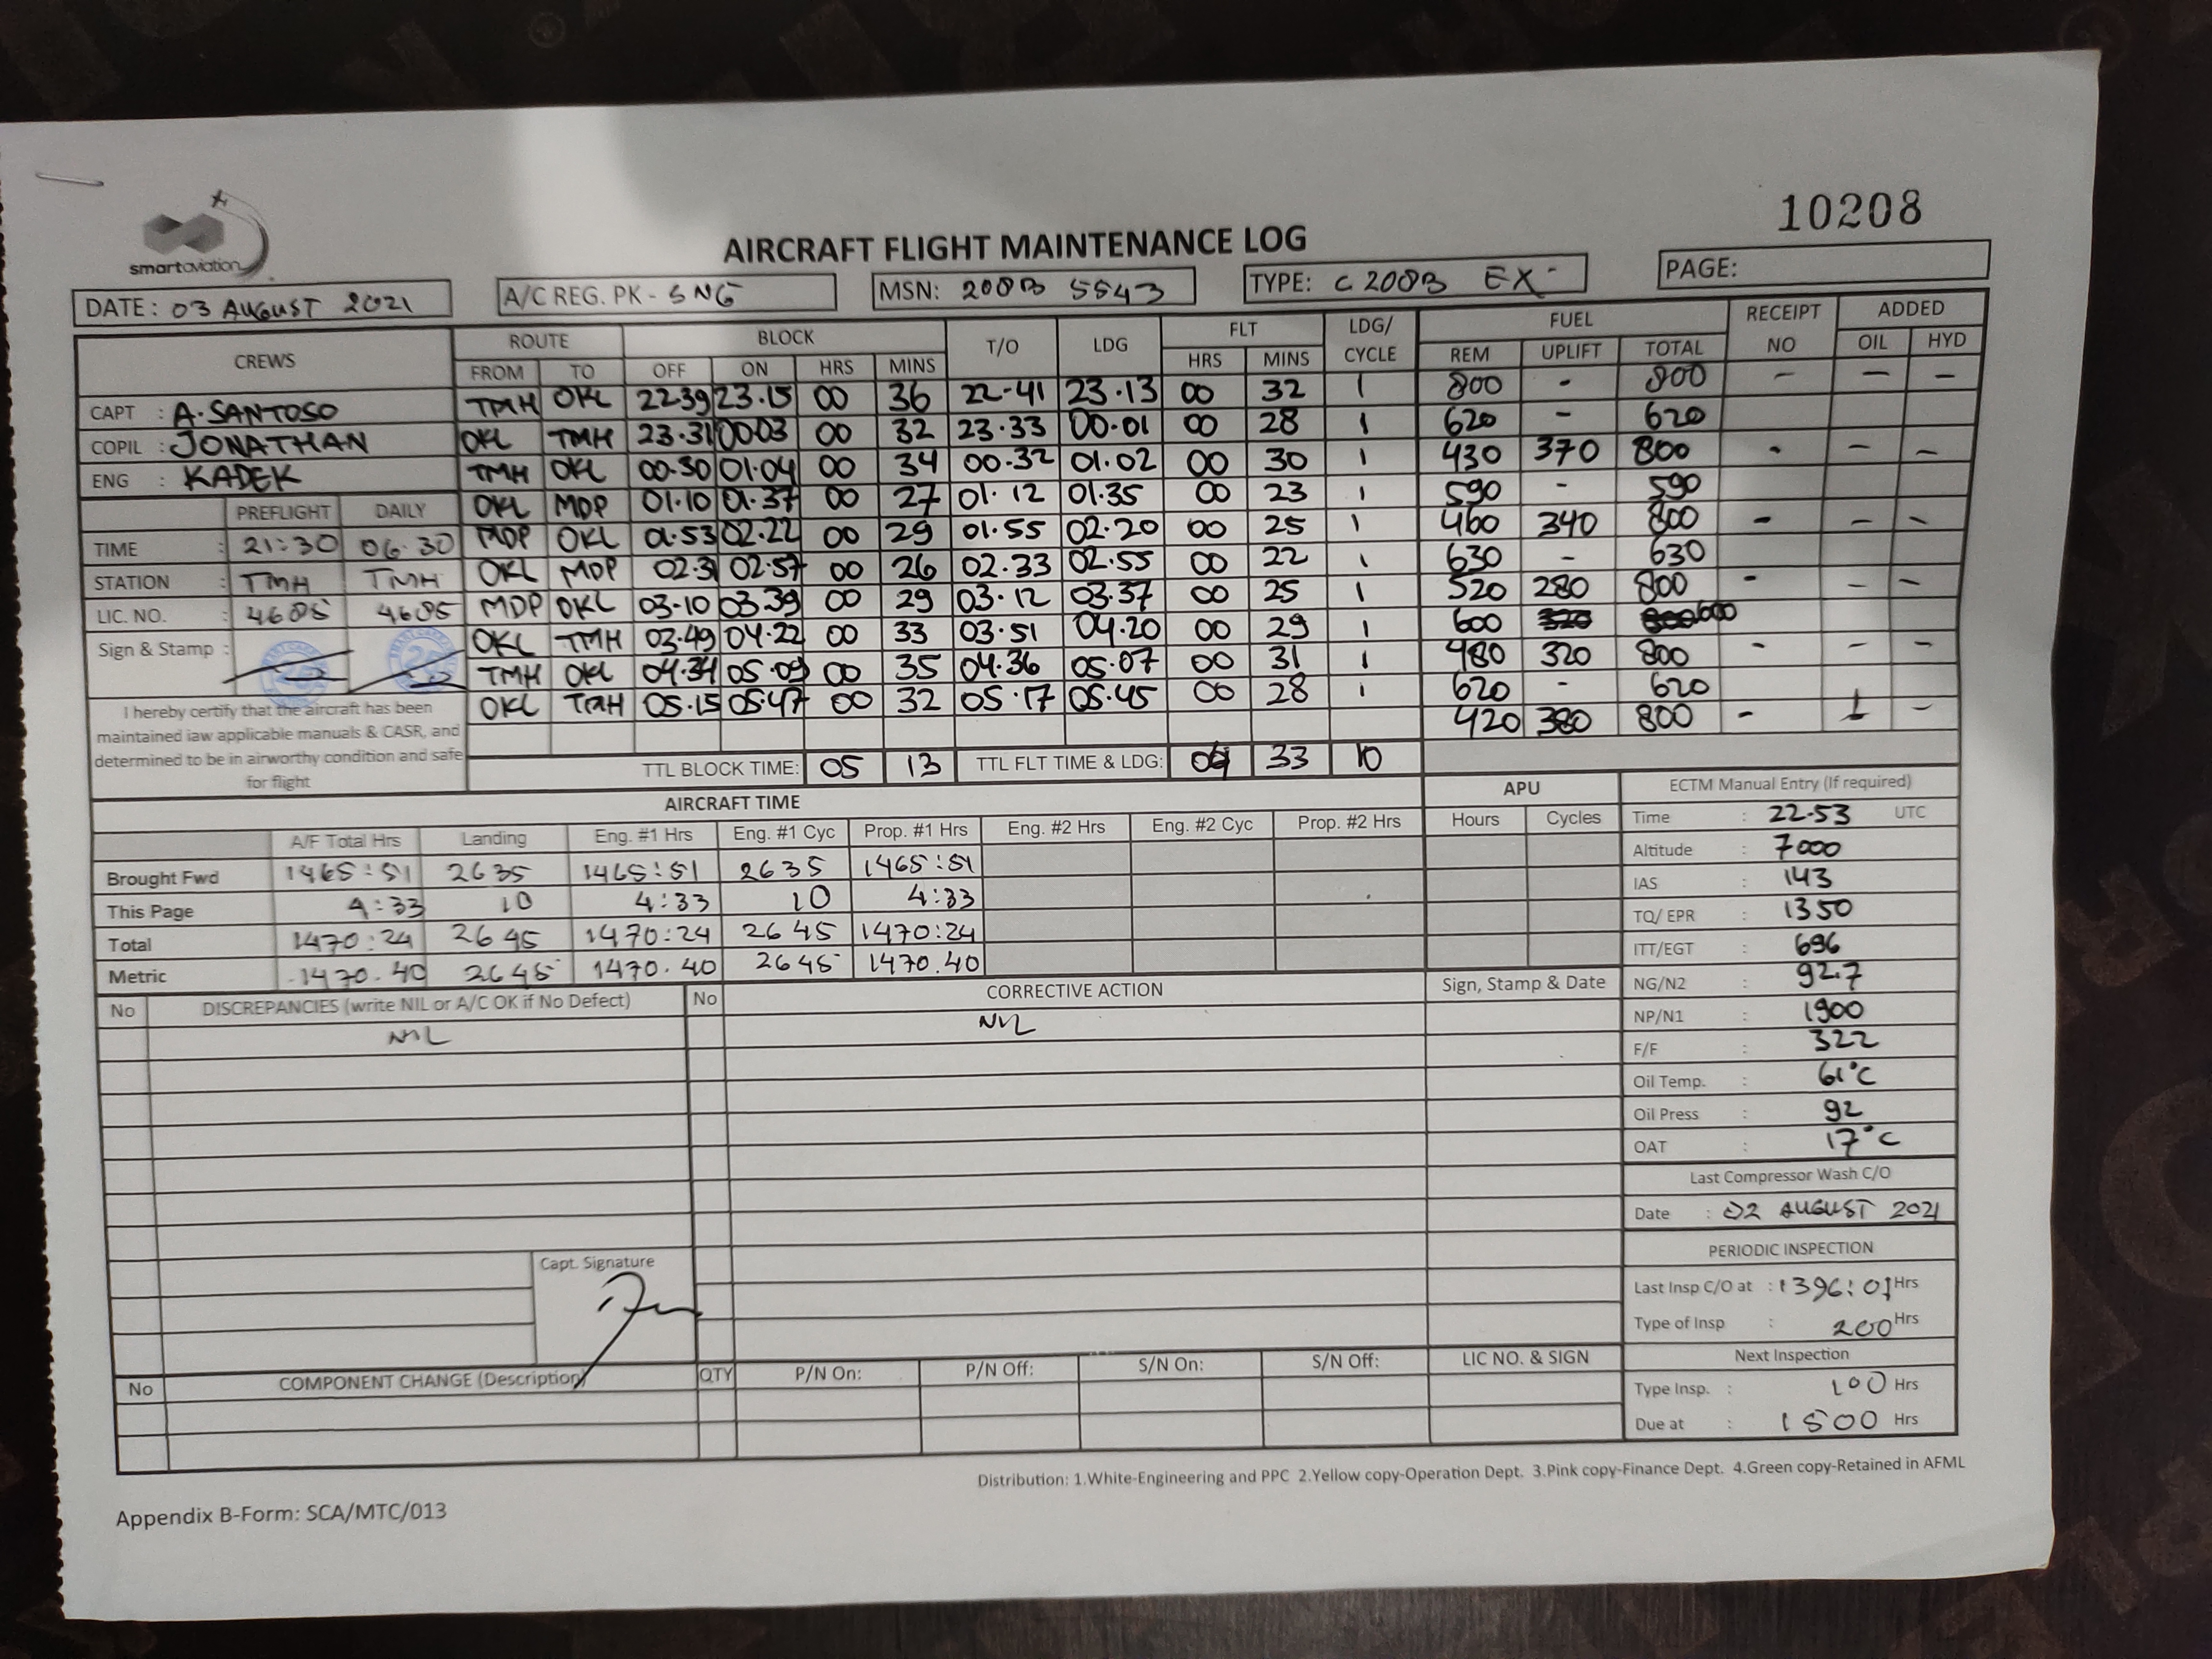 10208
smartaviation
AIRCRAFT FLIGHT MAINTENANCE LOG
DATE: 03 AUGUST 2021 A/C REG. PK - SNG MSN: 208B 5543 TYPE: C 208B EX PAGE:
CREWS ROUTE BLOCK T/O LDG FLT LDG/ CYCLE FUEL RECEIPT NO ADDED
FROM TO OFF ON HRS MINS HRS MINS REM UPLIFT TOTAL OIL HYD
CAPT : A. SANTOSO
COPIL : JONATHAN
ENG : KADEK
TMH OKL 22.39 23.15 00 36 22-41 23.13 00 32 1 800 - 800 - - -
OKL TMH 23.31 00.03 00 32 23.33 00.01 00 28 1 620 - 620
TMH OKL 00.30 01.04 00 34 00.32 01.02 00 30 1 430 370 800 - - -
OKL MDP 01.10 01.37 00 27 01.12 01.35 00 23 1 590 - 590
MDP OKL 01.53 02.22 00 29 01.55 02.20 00 25 1 460 340 800 - - -
OKL MDP 02.31 02.57 00 26 02.33 02.55 00 22 1 630 - 630
MDP OKL 03-10 03.39 00 29 03.12 03.37 00 25 1 520 280 800 - - -
OKL TMH 03.49 04.22 00 33 03.51 04.20 00 29 1 600 600
TMH OKL 04.34 05.09 00 35 04.36 05.07 00 31 1 480 320 800 - - -
OKL TMH 05.15 05.47 00 32 05.17 05.45 00 28 1 620 - 620
420 380 800 - 1 -
PREFLIGHT DAILY
TIME : 21:30 06:30
STATION : TMH TMH
LIC. NO. : 4685 4685
Sign & Stamp :
I hereby certify that the aircraft has been
maintained iaw applicable manuals & CASR, and
determined to be in airworthy condition and safe
for flight
TTL BLOCK TIME: 05 13 TTL FLT TIME & LDG: 04 33 10
AIRCRAFT TIME APU
A/F Total Hrs Landing Eng. #1 Hrs Eng. #1 Cyc Prop. #1 Hrs Eng. #2 Hrs Eng. #2 Cyc Prop. #2 Hrs Hours Cycles
Brought Fwd 1465:51 2635 1465:51 2635 1465:51
This Page 4:33 10 4:33 10 4:33
Total 1470:24 2645 1470:24 2645 1470:24
Metric 1470.40 2645 1470.40 2645 1470.40
ECTM Manual Entry (If required)
Time : 22.53 UTC
Altitude : 7000
IAS : 143
TQ/ EPR : 1350
ITT/EGT : 696
NG/N2 : 92.7
NP/N1 : 1900
F/F : 322
Oil Temp. : 61°C
Oil Press : 92
OAT : 17°C
Last Compressor Wash C/O
Date : 02 AUGUST 2021
PERIODIC INSPECTION
Last Insp C/O at : 1396:01 Hrs
Type of Insp : 200 Hrs
Next Inspection
Type Insp. : 100 Hrs
Due at : 1500 Hrs
No DISCREPANCIES (write NIL or A/C OK if No Defect) No CORRECTIVE ACTION Sign, Stamp & Date
NIL NIL
Capt. Signature
No COMPONENT CHANGE (Description) QTY P/N On: P/N Off: S/N On: S/N Off: LIC NO. & SIGN
Distribution: 1.White-Engineering and PPC 2.Yellow copy-Operation Dept. 3.Pink copy-Finance Dept. 4.Green copy-Retained in AFML
Appendix B-Form: SCA/MTC/013